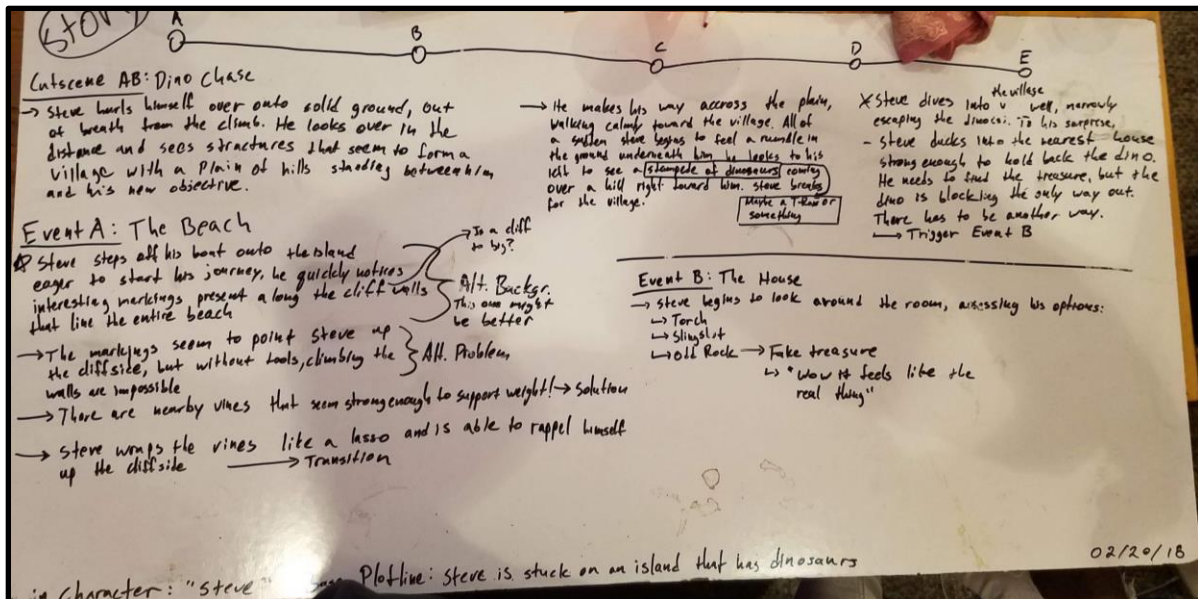 Story
A
B
C
D
E
Cutscene AB: Dino Chase
→ Steve hurls himself over onto solid ground, out
of breath from the climb. He looks over in the
distance and sees structures that seem to form a
village with a Plain of hills standing between him
and his new objective.
→ He makes his way accross the plain,
walking calmly toward the village. All of
a sudden steve begins to feel a rumble in
the ground underneath him he looks to his
left to see a stampede of dinosaurs coming
over a hill right toward him. steve breaks
for the village.
Maybe a T-Rex or
something
the village
* Steve dives into v well, narrowly
escaping the dino. To his surprise,
- Steve ducks into the nearest house
strong enough to hold back the dino.
He needs to find the treasure, but the
dino is blocking the only way out.
There has to be another way.
→ Trigger Event B
Event A: The Beach
Steve steps off his boat onto the island
eager to start his journey, he quickly notices
interesting markings present along the cliff walls
that line the entire beach
→ Is a cliff
to big?
Alt. Backgr.
This one might
be better
→ The markings seem to point Steve up
the cliffside, but without tools, climbing the
walls are impossible
Alt. Problem
→ There are nearby vines that seem strong enough to support weight! → Solution
→ Steve wraps the vines like a lasso and is able to rappel himself
up the cliffside → Transition
Event B: The House
→ Steve begins to look around the room, assessing his options:
↳ Torch
↳ Slingshot
↳ Odd Rock → Fake treasure
↳ "Wow it feels like the
real thing"
02/20/18
Character: "Steve" Plotline: Steve is stuck on an island that has dinosaurs